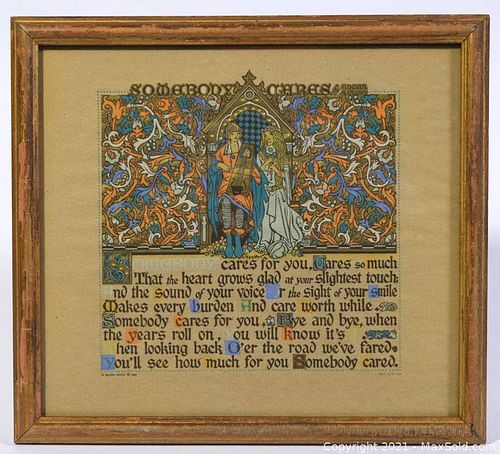 SOMEBODY CARES
SOMEBODY cares for you, Cares so much
That the heart grows glad at your slightest touch,
And the sound of your voice Or the sight of your Smile
Makes every burden And care worth while.
Somebody cares for you, Bye and bye, when
the years roll on, you will know it's
hen looking back O'er the road we've fared.
You'll see how much for you Somebody cared.
Copyright 2021 - MaxSold.com